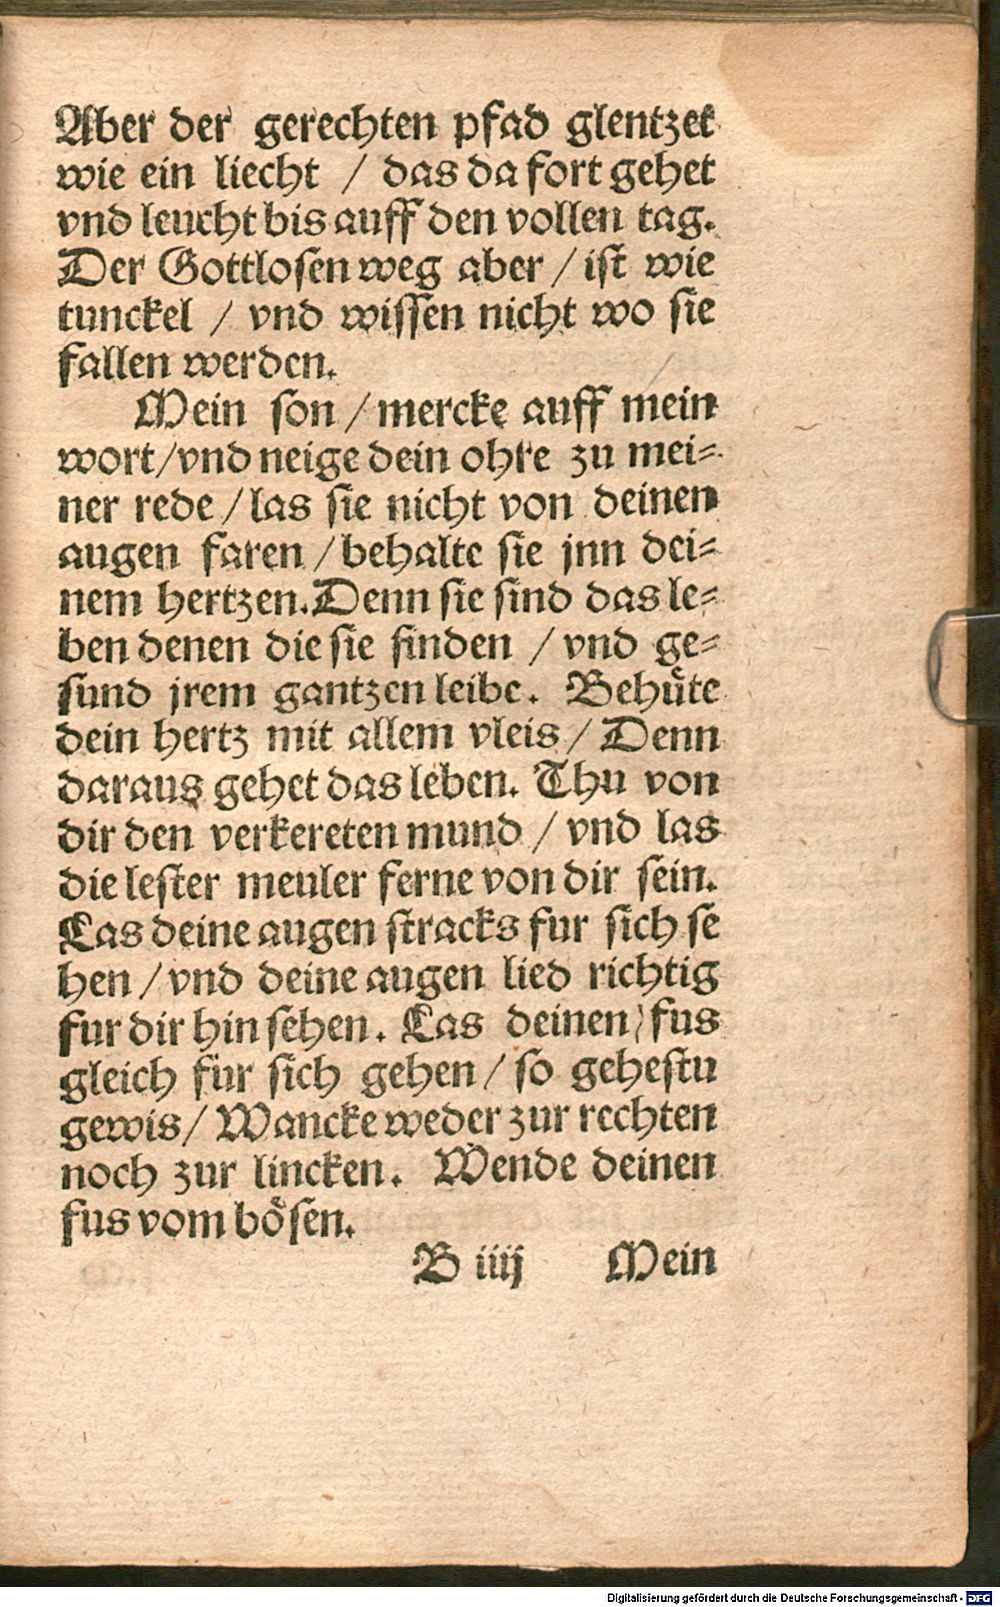 Aber der gerechten pfad glentzet
wie ein liecht / das da fort gehet
vnd leucht bis auff den vollen tag.
Der Gottlosen weg aber / ist wie
tunckel / vnd wissen nicht wo sie
fallen werden.
Mein son / mercke auff mein
wort / vnd neige dein ohre zu mei=
ner rede / las sie nicht von deinen
augen faren / behalte sie jnn dei=
nem hertzen. Denn sie sind das le=
ben denen die sie finden / vnd ge=
sund jrem gantzen leibe. Behuͤte
dein hertz mit allem vleis / Denn
daraus gehet das leben. Thu von
dir den verkereten mund / vnd las
die lester meuler ferne von dir sein.
Las deine augen stracks fur sich se
hen / vnd deine augen lied richtig
fur dir hin sehen. Las deinen fus
gleich fur sich gehen / so gehestu
gewis / Wancke weder zur rechten
noch zur lincken. Wende deinen
fus vom boͤsen.
B iiij Mein
Digitalisierung gefördert durch die Deutsche Forschungsgemeinschaft - DFG